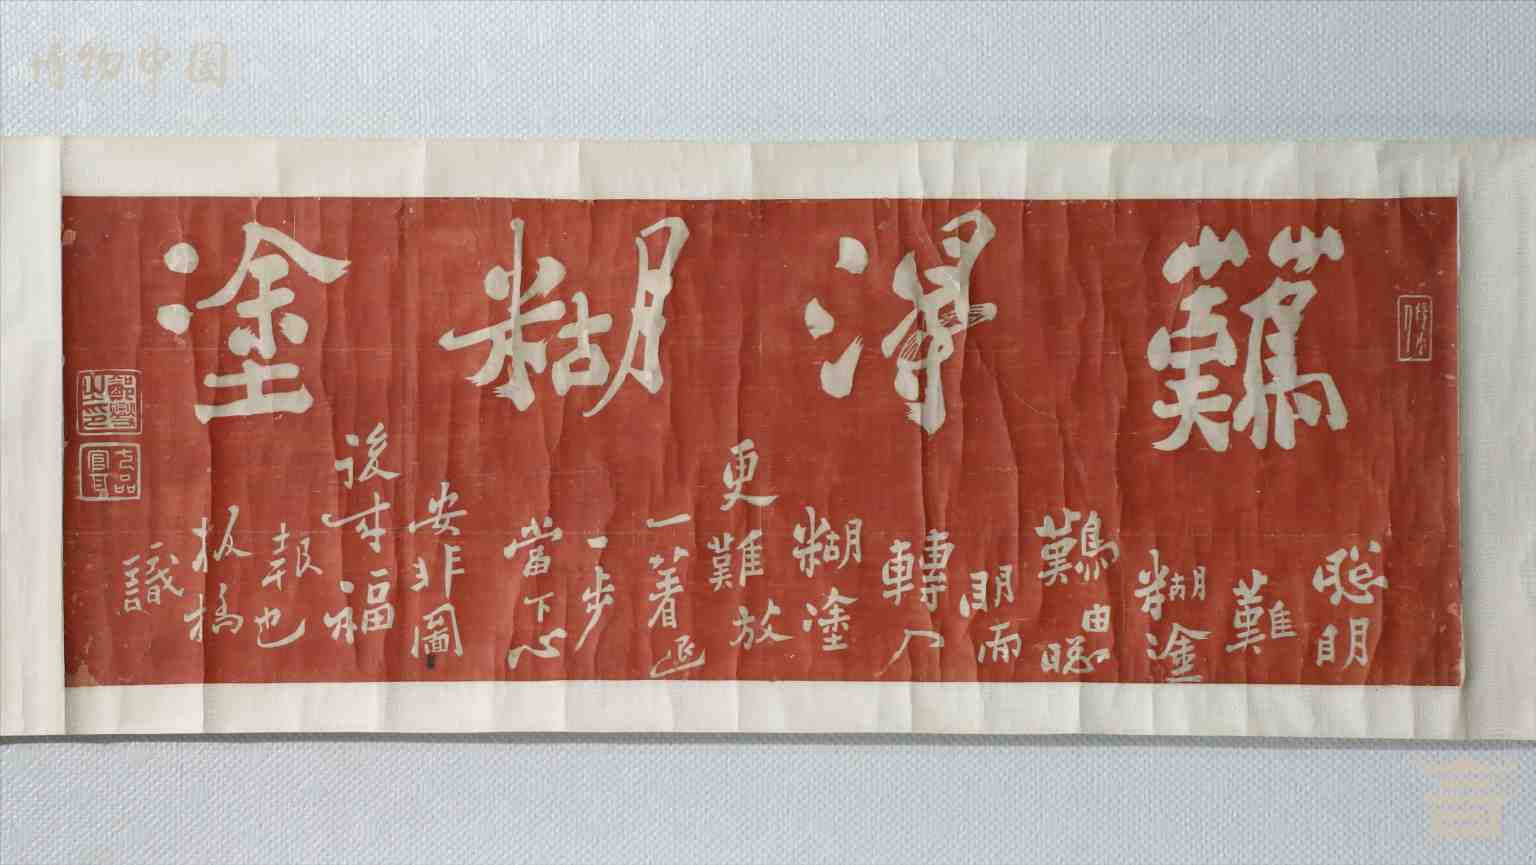 博物中国
難得糊塗
聰明
難
糊塗
難由聰
明而
轉入
糊塗
更難放
一著退
一步
當下心
安非圖
後來福
報也
板橋
識
鄭燮之印
七品官耳